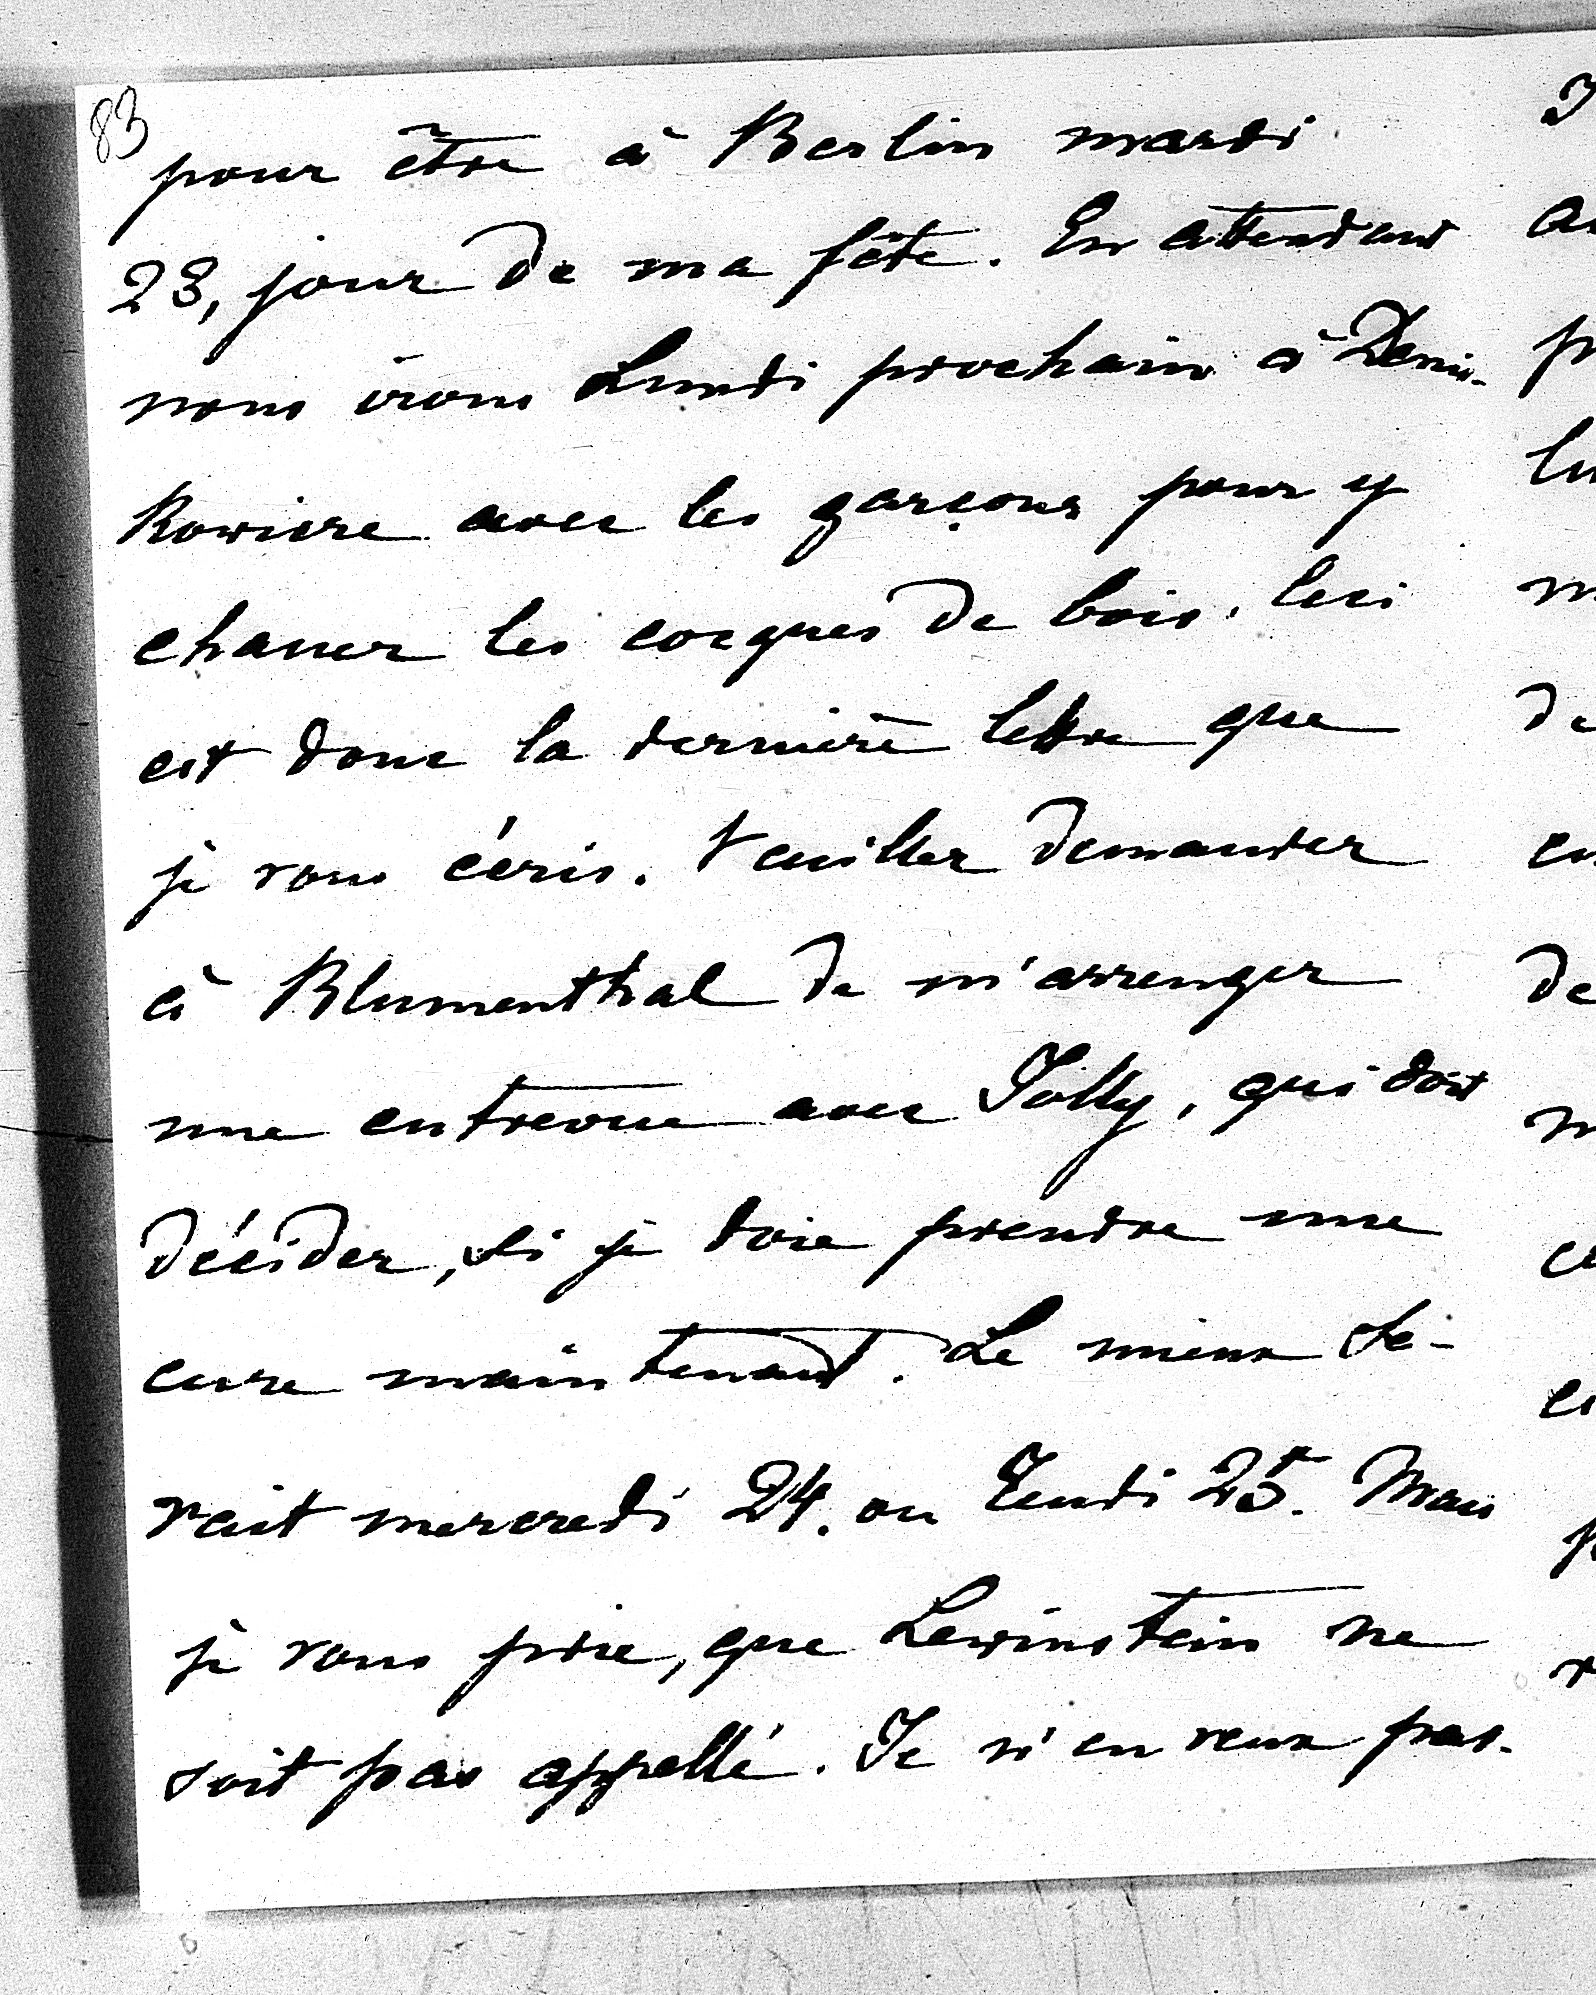 83
pour être à Berlin mardi
23, jour de ma fête. En attendant
nous irons Lundi prochain à
Rowiere avec les garçons pour y
chasser les coeques de bois. Ceci
est donc la dernière lettre que
je vous écris. Veuillez demander
à Blumenthal de m'arrenger
une entrevue avec Jolly, qui doit
décider, si je dois prendre une
cure maintenant. Le mieux se-
rait mercredi 24. ou Jeudi 25. Mais
je vous prie, que Lewinstein ne
soit pas appellé. Je n'en veux pas.